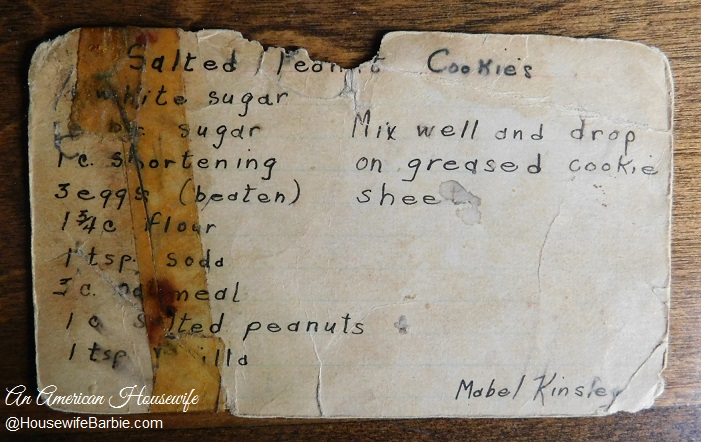 Salted Peanut Cookies
white sugar
sugar
1 c. shortening
3 eggs (beaten)
1 3/4 c flour
1 tsp. soda
3 c. oatmeal
1 c salted peanuts
1 tsp vanilla
Mix well and drop
on greased cookie
sheet
Mabel Kinsley
An American Housewife
@HousewifeBarbie.com